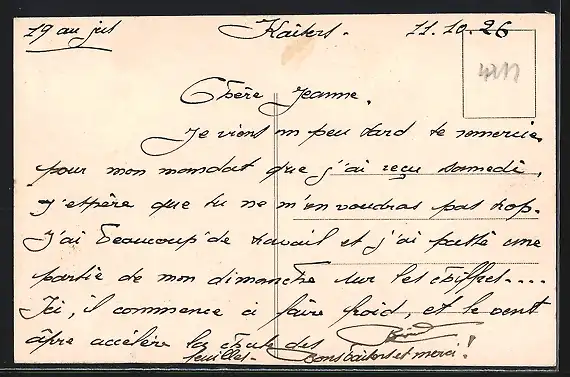 19 au jus Kaiters. 11.10.26
Chère Jeanne,
Je viens un peu tard te remercier
pour mon mandat que j'ai reçu samedi,
j'espère que tu ne m'en voudras pas trop.
J'ai beaucoup de travail et j'ai passé une
partie de mon dimanche sur les chiffres....
Ici, il commence à faire froid, et le vent
âpre accélère la chute des
feuilles. Bons baisers et merci!